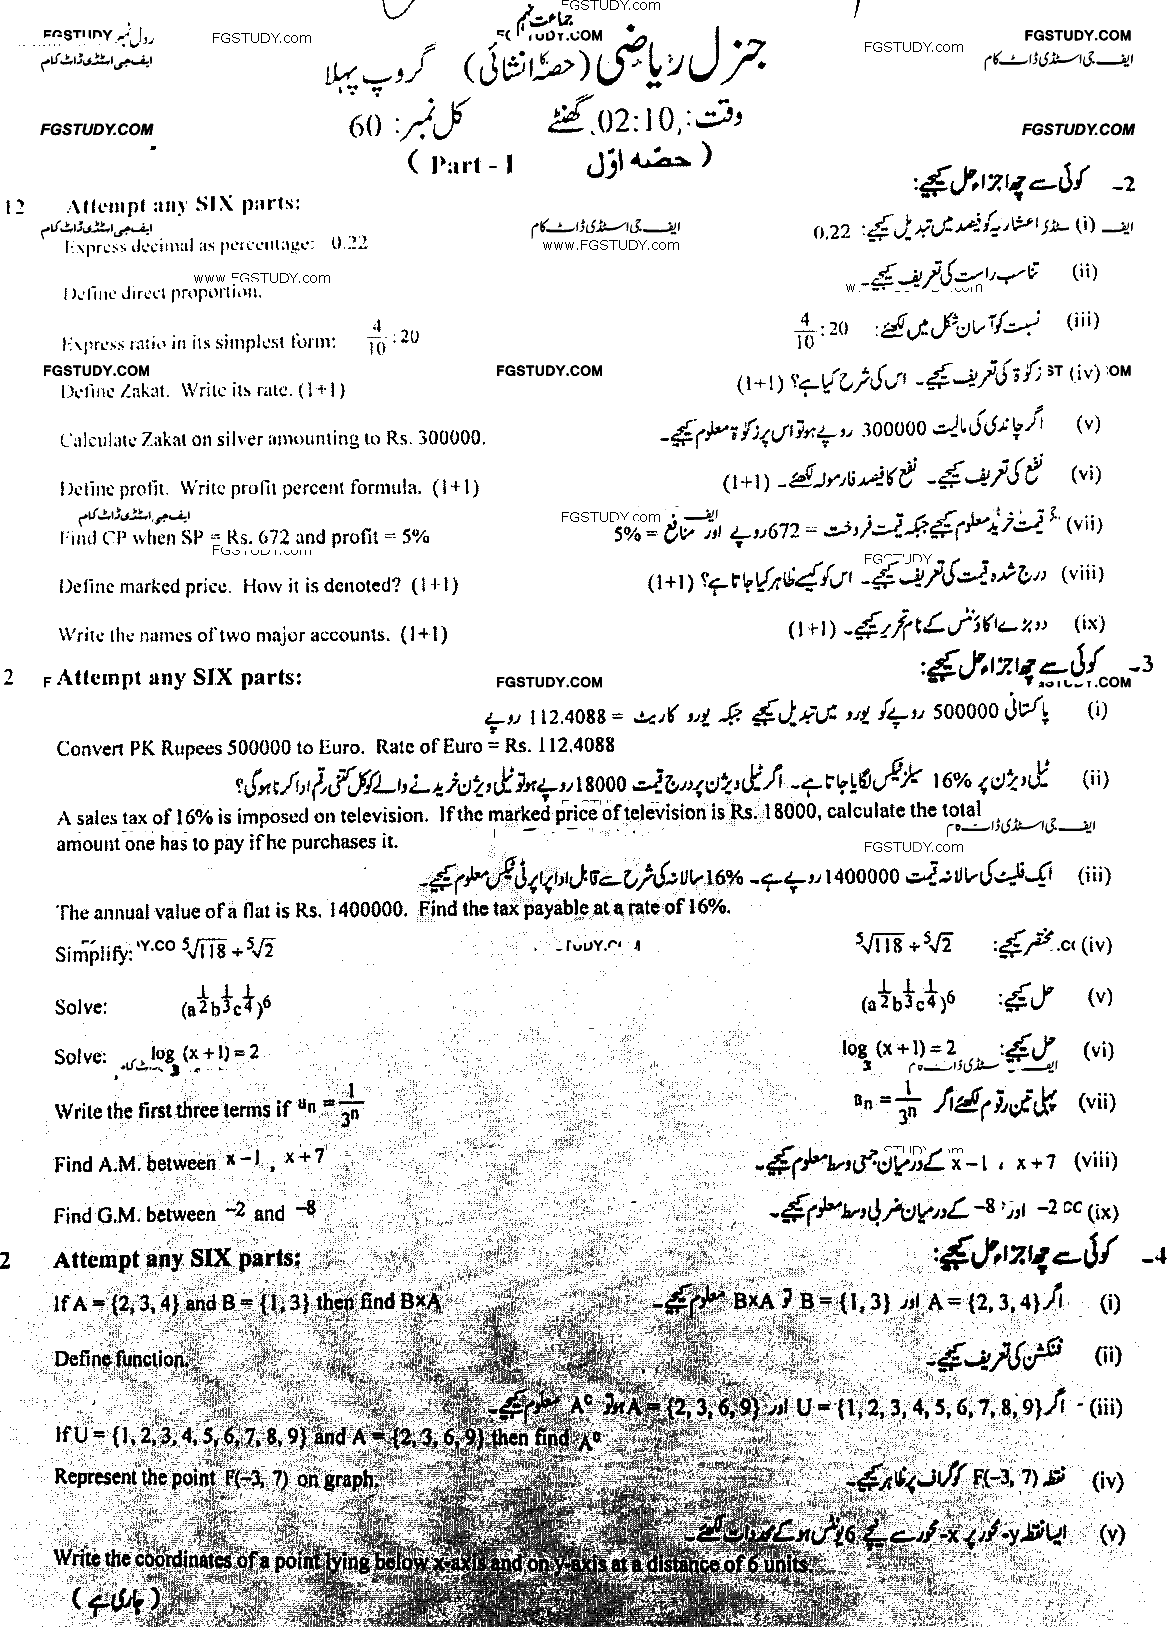 FGSTUDY.com
جماعت نہم
FGSTUDY رول نمبر
FGSTUDY.com
FGSTUDY.COM
FGSTUDY.com
FGSTUDY.COM
ایف جی اسٹڈی ڈاٹ کام
جنرل ریاضی (حصہ انشائی) گروپ پہلا
ایف جی اسٹڈی ڈاٹ کام
FGSTUDY.COM
وقت: 02:10 گھنٹے کل نمبر: 60
FGSTUDY.COM
( Part - I حصہ اوّل )
2- کوئی سے چھ اجزاء حل کیجیے:
12 Attempt any SIX parts:
ایف جی اسٹڈی ڈاٹ کام
ایف جی اسٹڈی ڈاٹ کام
(i) اعشاریہ کو فیصد میں تبدیل کیجیے: 0.22
Express decimal as percentage: 0.22
www.FGSTUDY.com
www.FGSTUDY.com
(ii) تناسب راست کی تعریف کیجیے۔
Define direct proportion.
(iii) نسبت کو آسان شکل میں لکھئے: 4/10 : 20
Express ratio in its simplest form: 4/10 : 20
FGSTUDY.COM
FGSTUDY.COM
(iv) زکوٰۃ کی تعریف کیجیے۔ اس کی شرح کیا ہے؟ (1+1)
Define Zakat. Write its rate. (1+1)
(v) اگر چاندی کی مالیت 300000 روپے ہو تو اس پر زکوٰۃ معلوم کیجیے۔
Calculate Zakat on silver amounting to Rs. 300000.
(vi) نفع کی تعریف کیجیے۔ نفع کا فیصد فارمولہ لکھئے۔ (1+1)
Define profit. Write profit percent formula. (1+1)
ایف جی اسٹڈی ڈاٹ کام
FGSTUDY.com
(vii) قیمت خرید معلوم کیجیے جبکہ قیمت فروخت = 672 روپے اور منافع = 5%
Find CP when SP = Rs. 672 and profit = 5%
FGSTUDY.com
FGSTUDY
(viii) درج شدہ قیمت کی تعریف کیجیے۔ اس کو کیسے ظاہر کیا جاتا ہے؟ (1+1)
Define marked price. How it is denoted? (1+1)
(ix) دو بڑے اکاؤنٹس کے نام تحریر کیجیے۔ (1+1)
Write the names of two major accounts. (1+1)
3- کوئی سے چھ اجزاء حل کیجیے:
2 F Attempt any SIX parts:
FGSTUDY.COM
(i) پاکستانی 500000 روپے کو یورو میں تبدیل کیجیے جبکہ یورو کا ریٹ = 112.4088 روپے
Convert PK Rupees 500000 to Euro. Rate of Euro = Rs. 112.4088
(ii) ٹیلی ویژن پر 16% سیلز ٹیکس لگایا جاتا ہے۔ اگر ٹیلی ویژن پر درج قیمت 18000 روپے ہو تو ٹیلی ویژن خریدنے والے کو کل کتنی رقم ادا کرنا ہوگی؟
A sales tax of 16% is imposed on television. If the marked price of television is Rs. 18000, calculate the total
amount one has to pay if he purchases it.
FGSTUDY.com
(iii) ایک فلیٹ کی سالانہ قیمت 1400000 روپے ہے۔ 16% سالانہ کی شرح سے قابل ادا پراپرٹی ٹیکس معلوم کیجیے۔
The annual value of a flat is Rs. 1400000. Find the tax payable at a rate of 16%.
(iv) مختصر کیجیے: ⁵√118 ÷ ⁵√2
Simplify: ⁵√118 ÷ ⁵√2
(v) حل کیجیے: (a^1/2 b^1/3 c^1/4)^6
Solve: (a^1/2 b^1/3 c^1/4)^6
(vi) حل کیجیے: log₃ (x + 1) = 2
Solve: log₃ (x + 1) = 2
(vii) پہلی تین رقوم لکھئے اگر aₙ = 1/3ⁿ
Write the first three terms if aₙ = 1/3ⁿ
(viii) x – 1 ، x + 7 کے درمیان حسابی وسط معلوم کیجیے۔
Find A.M. between x – 1 , x + 7
(ix) –2 اور –8 کے درمیان ضربی وسط معلوم کیجیے۔
Find G.M. between –2 and –8
4- کوئی سے چھ اجزاء حل کیجیے:
2 Attempt any SIX parts:
(i) اگر A = {2, 3, 4} اور B = {1, 3} تو B×A معلوم کیجیے۔
If A = {2, 3, 4} and B = {1, 3} then find B×A
(ii) فنکشن کی تعریف کیجیے۔
Define function.
(iii) اگر U = {1, 2, 3, 4, 5, 6, 7, 8, 9} اور A = {2, 3, 6, 9} ہو تو Aᶜ معلوم کیجیے۔
If U = {1, 2, 3, 4, 5, 6, 7, 8, 9} and A = {2, 3, 6, 9} then find Aᶜ
(iv) نقطہ F(–3, 7) کو گراف پر ظاہر کیجیے۔
Represent the point F(–3, 7) on graph.
(v) ایسا نقطہ y-محور پر x-محور سے نیچے 6 یونٹس ہو کے محددات لکھئے۔
Write the coordinates of a point lying below x-axis and on y-axis at a distance of 6 units.
(جاری ہے)